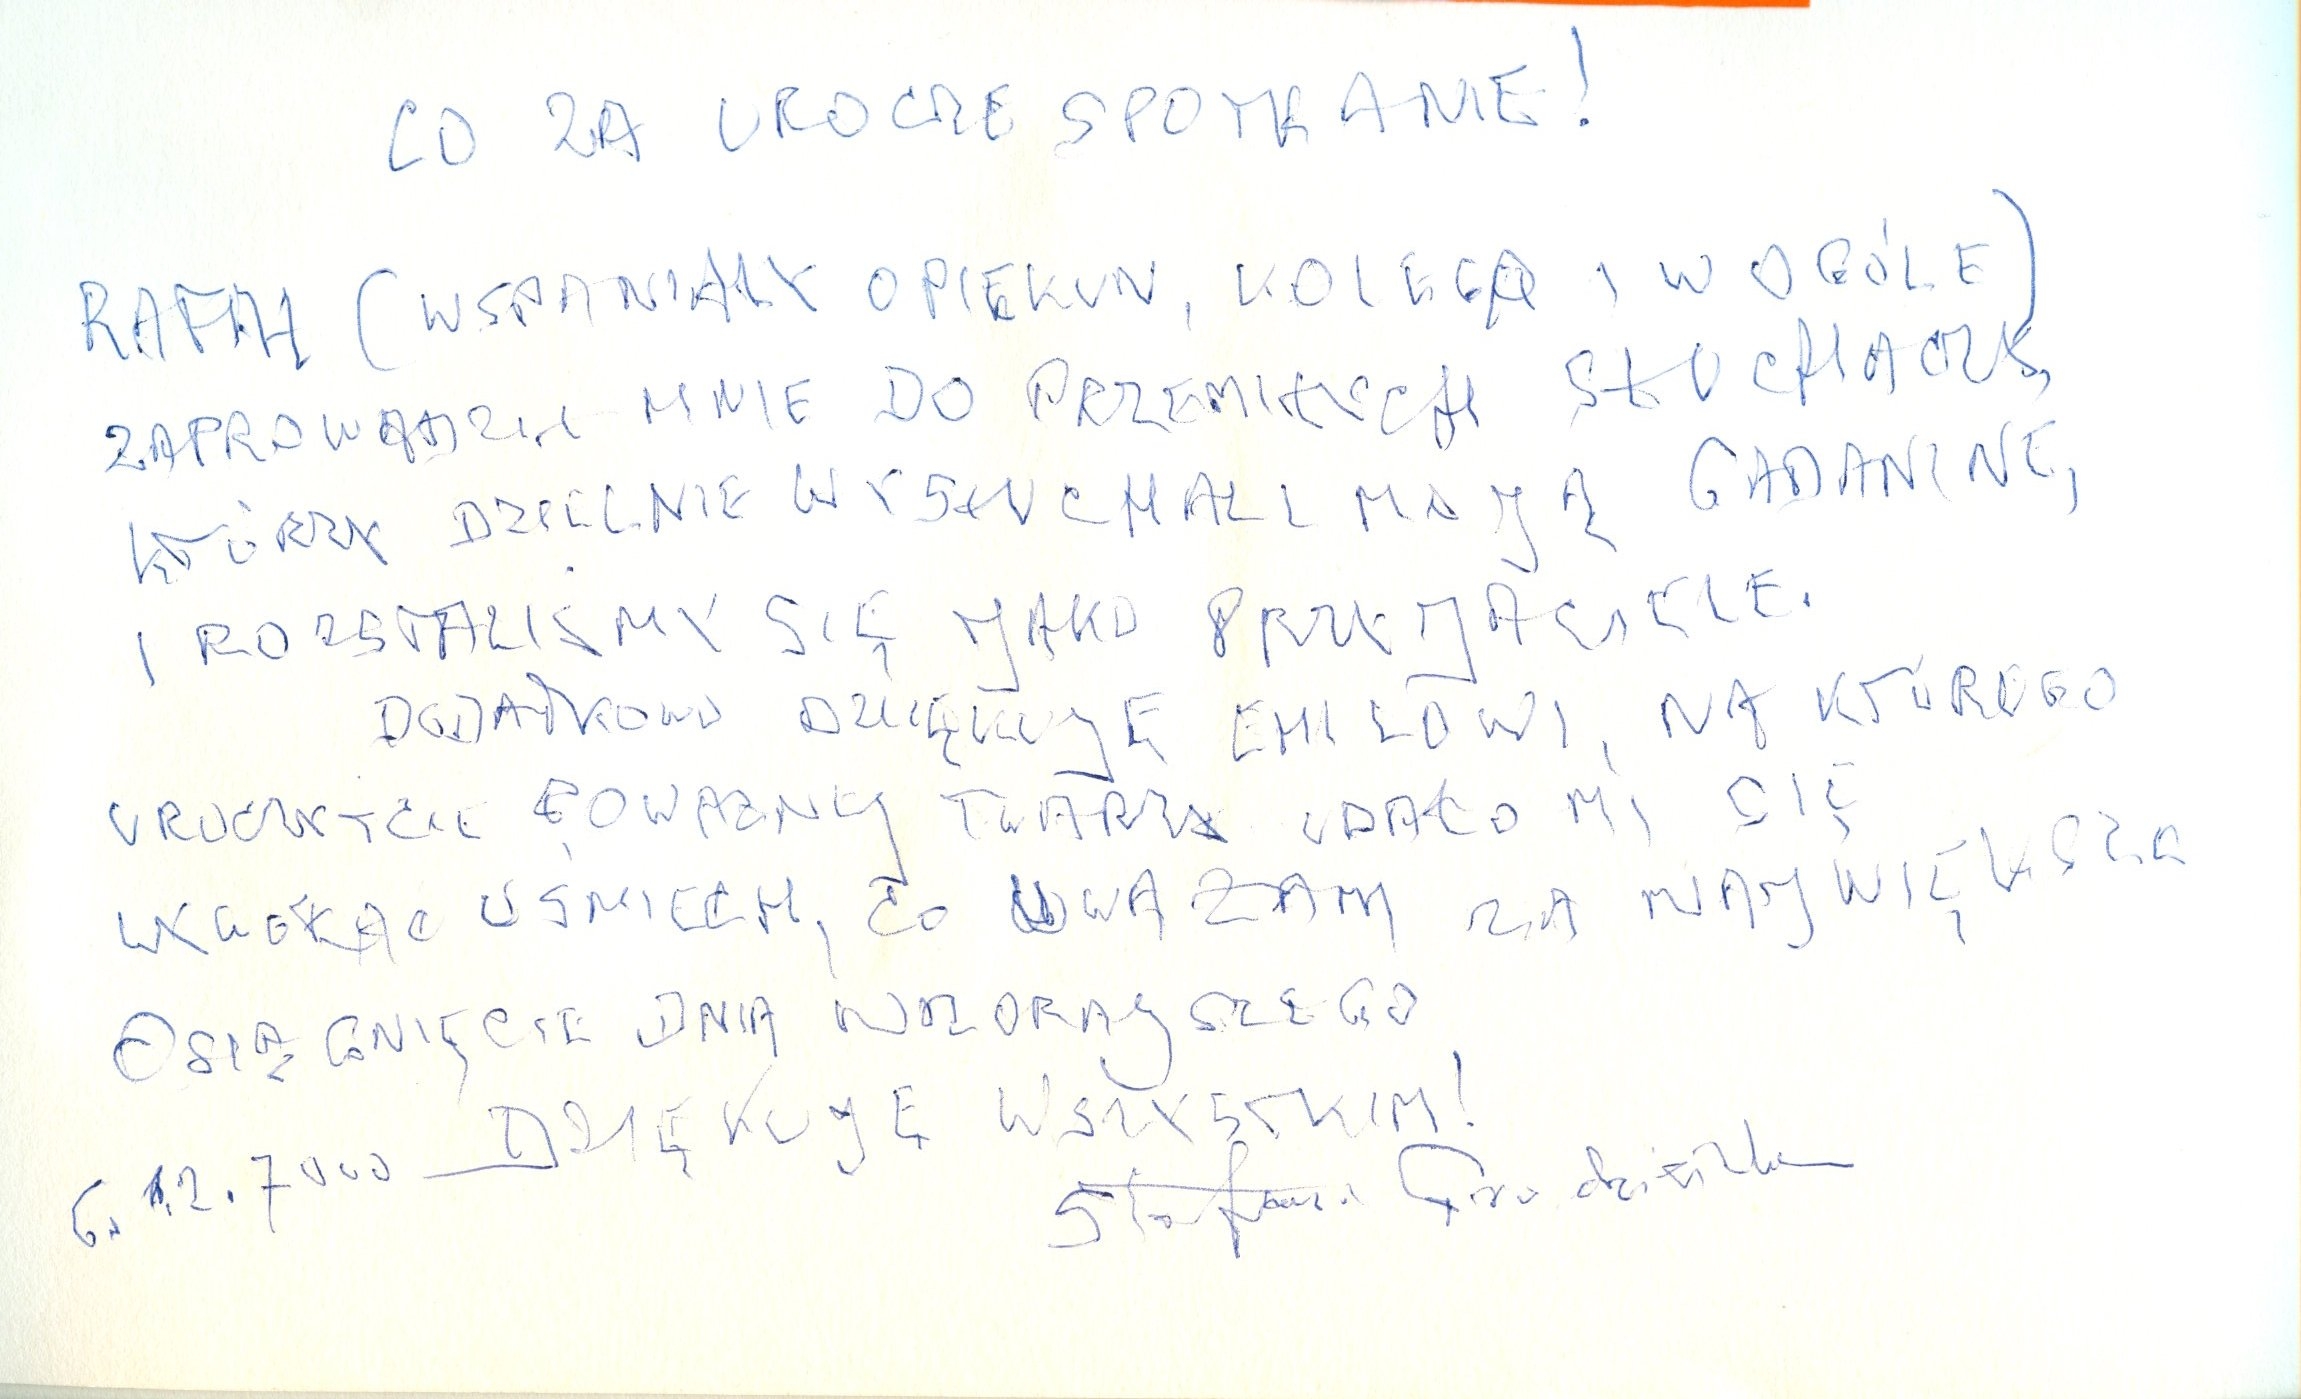 CO ZA UROCZE SPOTKANIE!
RAFAŁ (WSPANIAŁY OPIEKUN, KOLEGA I W OGÓLE)
ZAPROWADZIŁ MNIE DO PRZEMIŁYCH SŁUCHACZY,
KTÓRZY DZIELNIE WYSŁUCHALI MOJĄ GADANINĘ,
I ROZSTALIŚMY SIĘ JAKO PRZYJACIELE.
DODATKOWO DZIĘKUJĘ EMILOWI, NA KTÓREGO
UROCZYŚCIE POWAŻNEJ TWARZY UDAŁO MI SIĘ
WYWOŁAĆ UŚMIECH, CO UWAŻAM ZA NAJWIĘKSZE
OSIĄGNIĘCIE DNIA WCZORAJSZEGO
DZIĘKUJĘ WSZYSTKIM!
6.12.2000 Stefania Grodzieńska